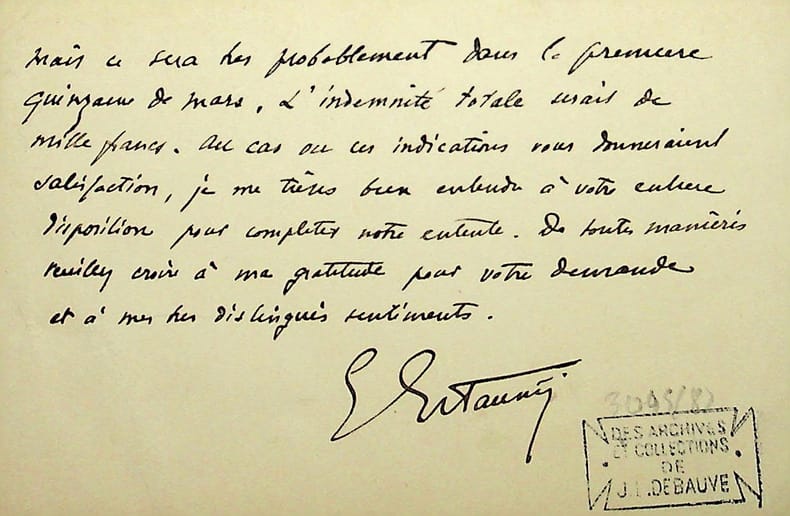 mais ce sera très probablement dans la première
quinzaine de mars. L'indemnité totale serait de
mille francs. Au cas où ces indications vous donneraient
satisfaction, je me tiens bien entendu à votre entière
disposition pour compléter notre entente. De toutes manières
veuillez croire à ma gratitude pour votre demande
et à mes très distingués sentiments.
E Estaunié
DES ARCHIVES
ET COLLECTIONS
DE
J.L. DEBAUVE